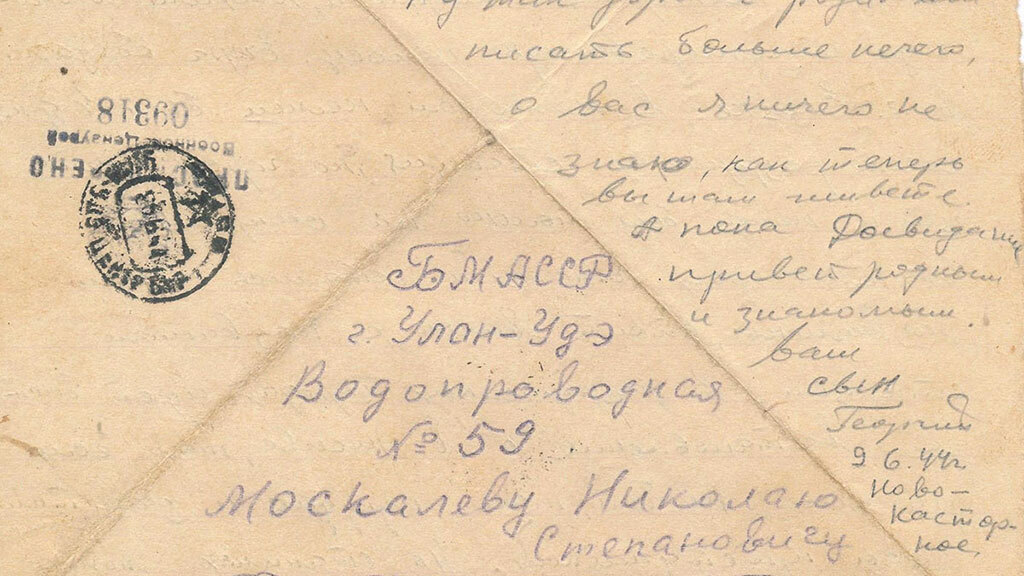 писать больше нечего,
о вас я ничего не
знаю, как теперь
вы там живете.
А пока Досвидания
привет родным
и знакомым.
Ваш
сын
Георгий
9 6. 44г.
Ново-
Касторное,
09318
Военной Цензурой
БМАССР
г. Улан-Удэ
Водопроводная
№ 59
Москалеву Николаю
Степановичу